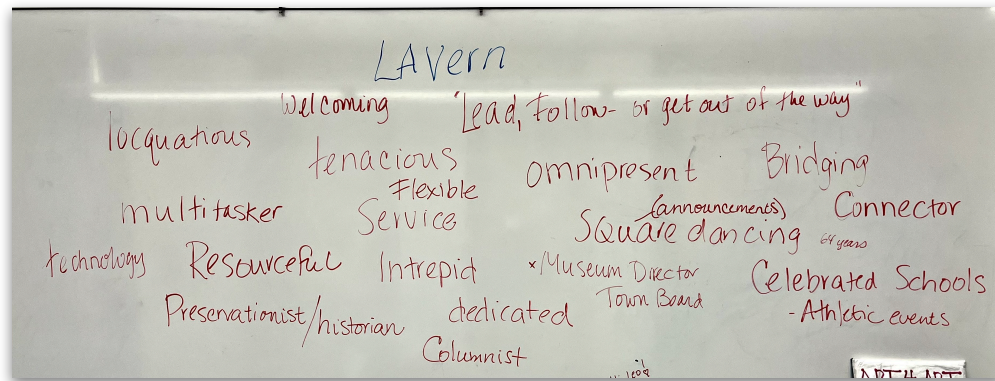 LAVern
Welcoming "Lead, Follow- or get out of the way"
locquatious
tenacious omnipresent Bridging
Flexible
multitasker Service (announcements) Connector
Square dancing 64 years
technology Resourceful Intrepid *Museum Director Celebrated Schools
Town Board
Preservationist/historian dedicated - Athletic events
Columnist